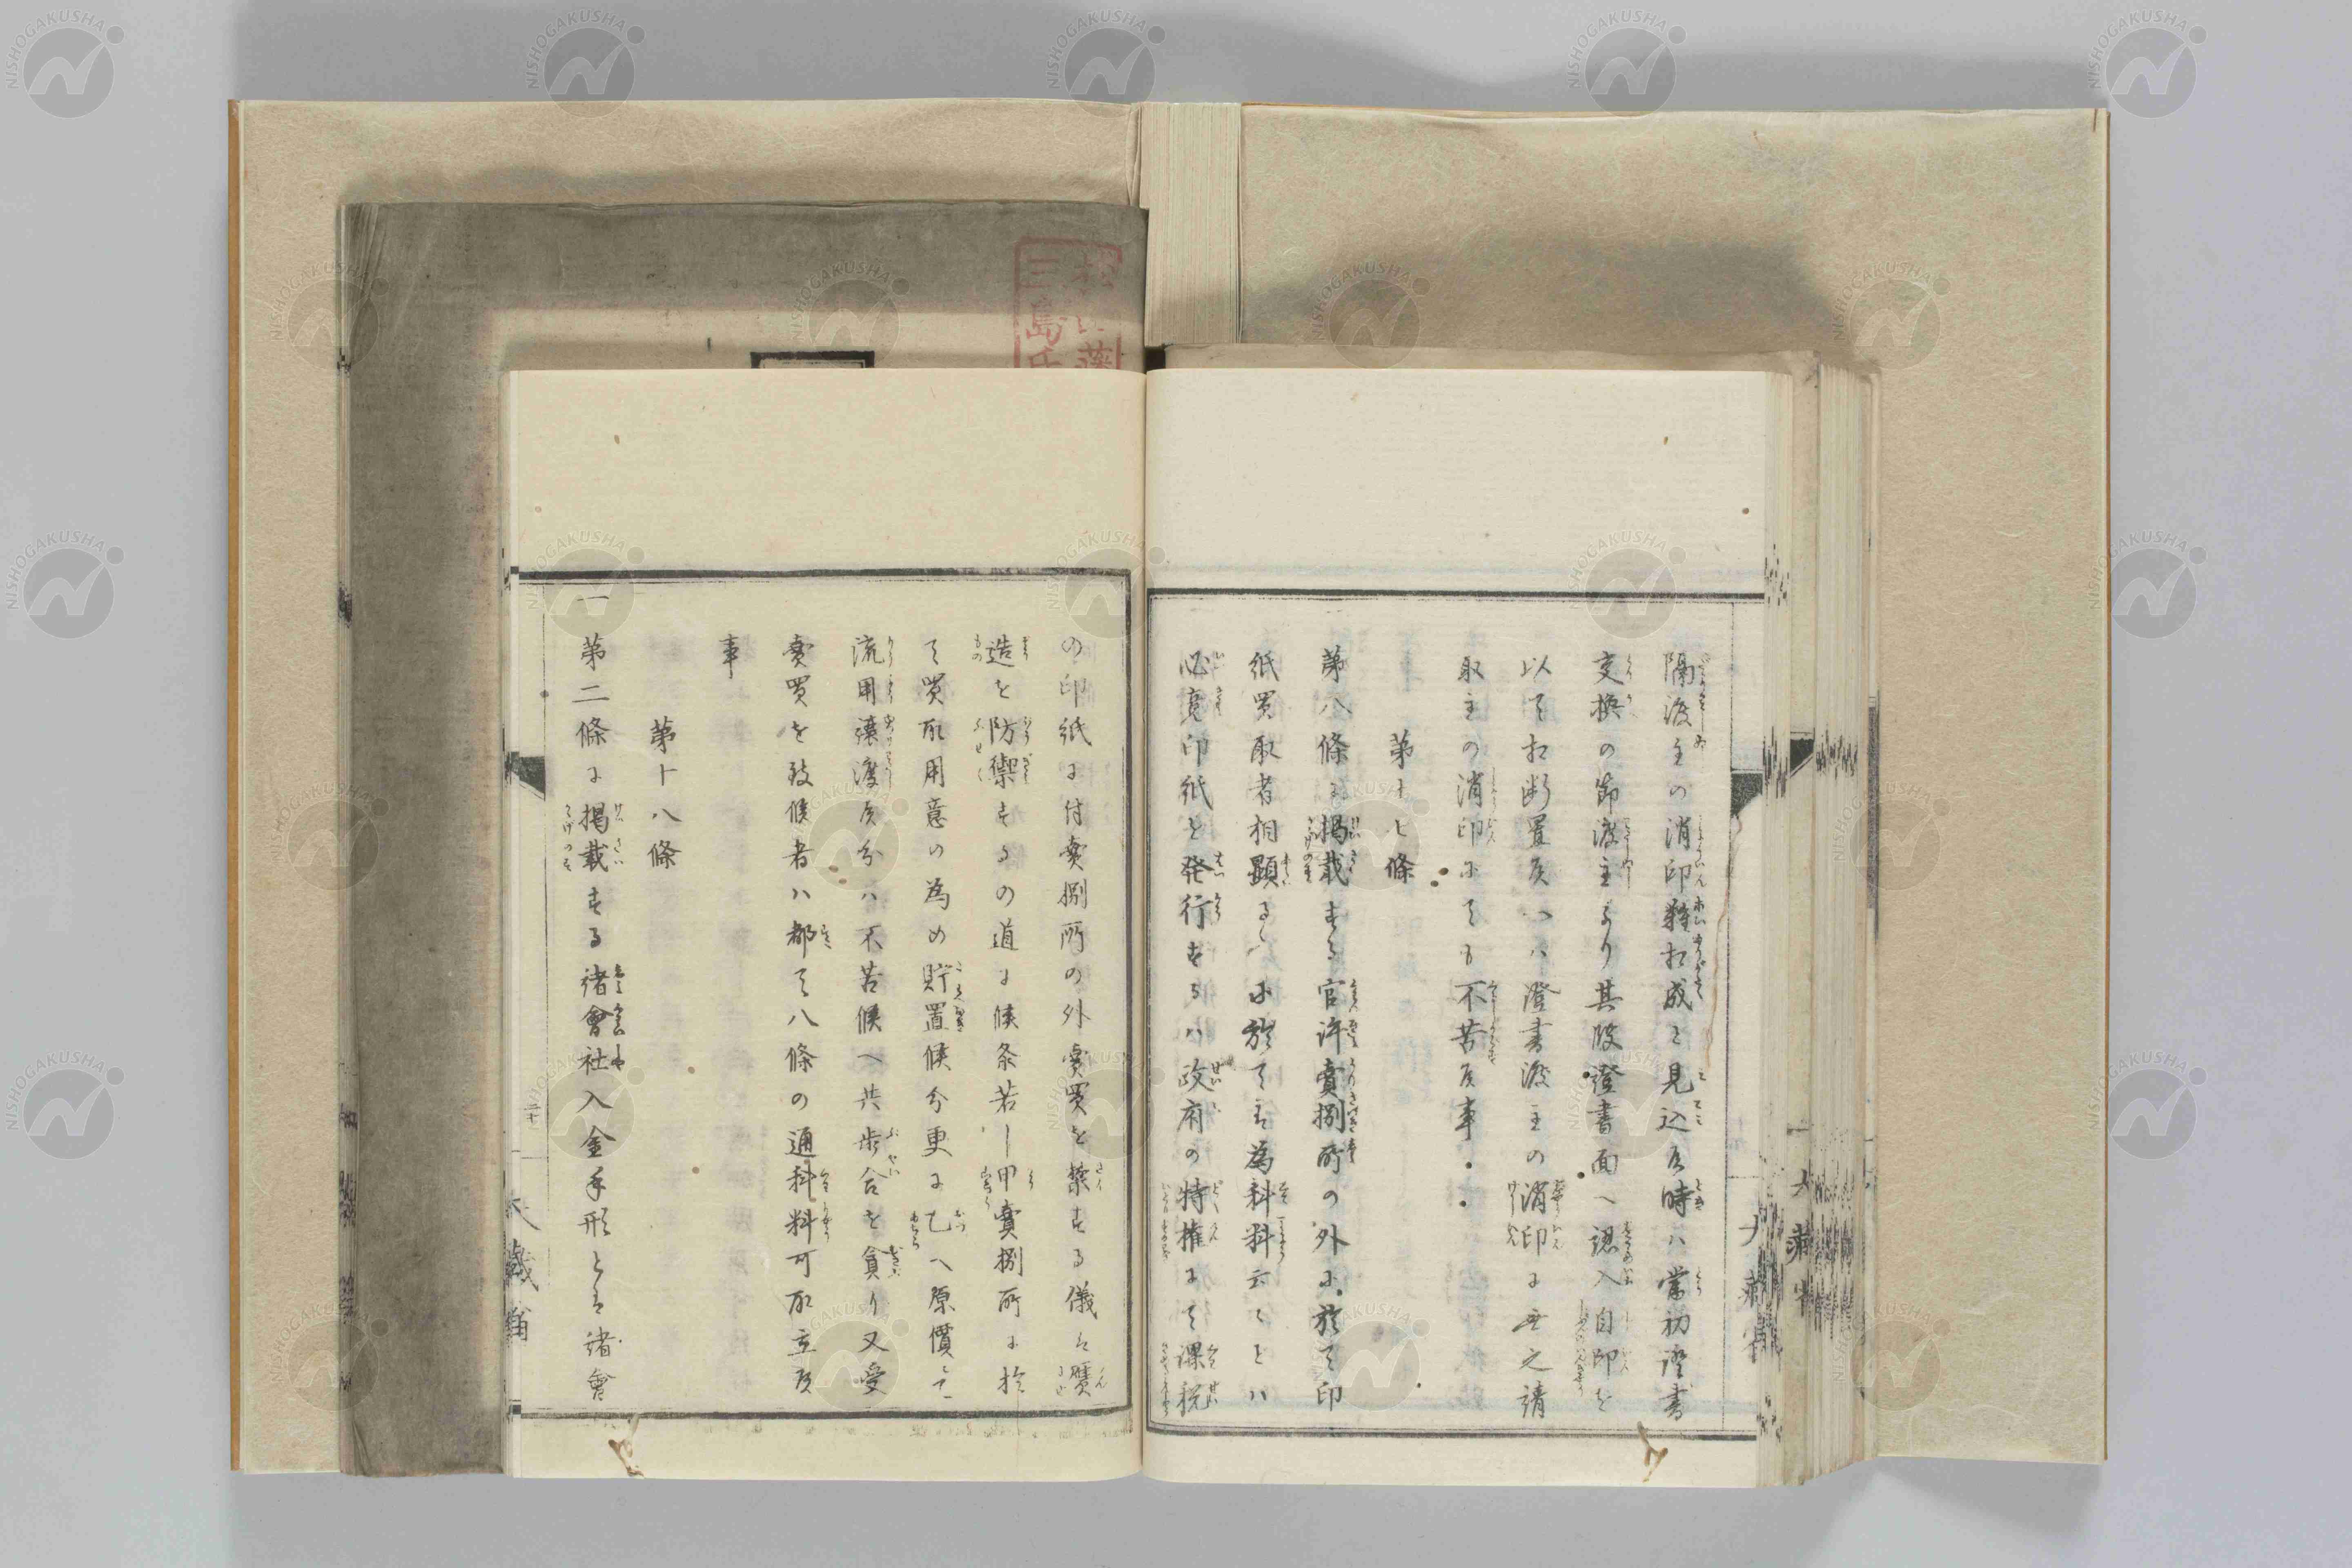 隔渡主の消印難相成と見込候時ハ當初證書
交換の節渡主より其段證書面へ認入自印を
以て相断置候へハ證書渡主の消印に無之請
取主の消印にても不苦候事
第十七條
第八條に掲載する官許賣捌所の外に於て印
紙買取者相顕るゝに於てを為科料云々とハ
必竟印紙を発行するハ政府の特権にて課税
の印紙に付賣捌所の外賣買を禁する儀は贋
造を防禦するの道に候条若し甲賣捌所に於
て買取用意の為め貯置候分更に乙へ原價にて
流用譲渡候分ハ不苦候へ共歩合を貪り又受
賣買を致候者ハ都て八條の通科料可取立候
事
第十八條
一
第二條に掲載する諸會社入金手形とは諸會
二十
大蔵省
三島氏
NISHOGAKUSHA